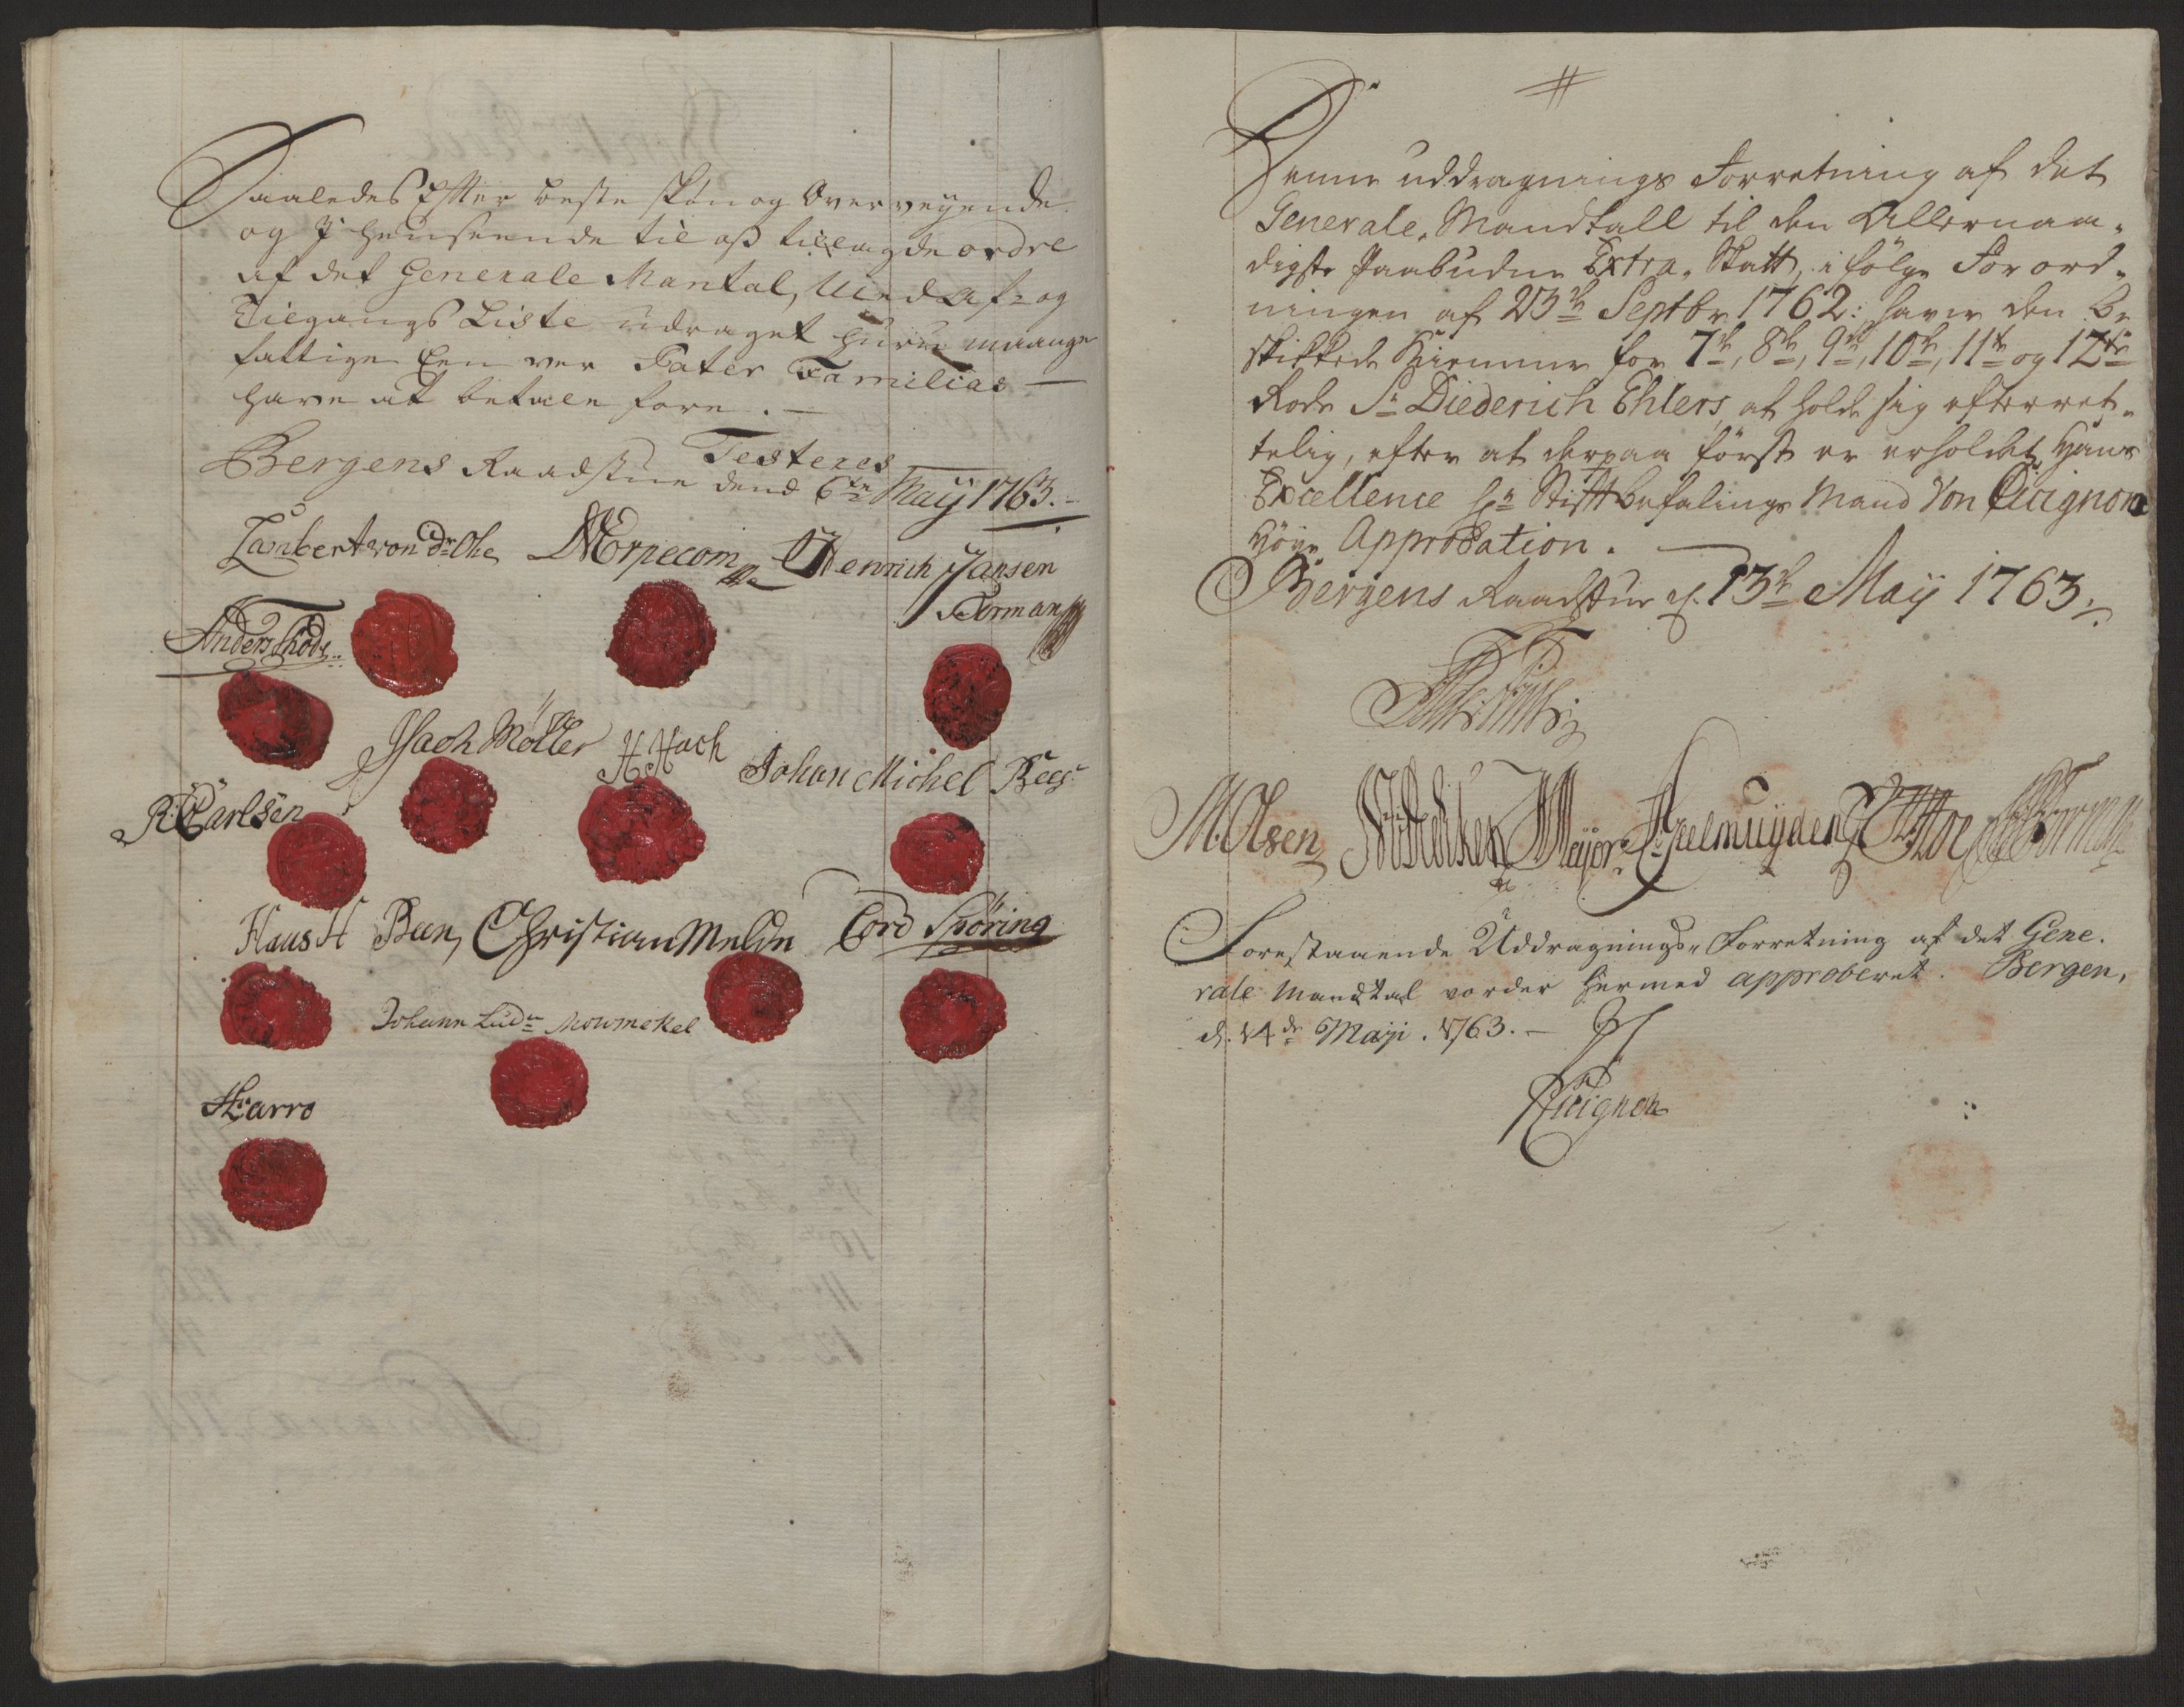 Saaledes Efter beste skjøn og Overveyende
og I henseende til os tillagde ordre
af det Generale Mantal, Med Af- og
Tilgangs Liste udraget huor mange
fattige Een ver Pater Familias
have at betale fore.
Testerer
Bergens Raadstue dend 6te Maij 1763.
Lambert von dr Ohe Henrich Jansen
Forman
Anders
Møller H Hach Johan Michel
R: Carlsen
Hans H Been Christian Cord Spöring
Johann Ludv
Harro
Denne uddragnings Forretning af det
Generale Mandtall til den Allernaa-
digste Paabudne Extra-Skatt, i følge Forord-
ningen af 23de Septbr 1762: haver den be
skikkede for 7de, 8de, 9de, 10de, 11te og 12te
Rode Sr Diederich Ehlers, at holde sig efterret-
telig, efter at derpaa först er erholdet Hans
Excellence Hr Stiftbefalings Mand Von Cicignon
Høye Approbation.
Bergens Raadstue d. 13de Maij 1763.
M. Olsen Meyer Geelmuyden
Forestaaende Uddragnings-Forretning af det Gene-
rale Mandtal vorder hermed approberet. Bergen,
d. 14de Maji. 1763.
Cicignon